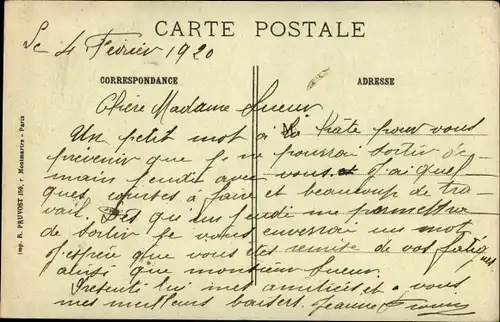 CARTE POSTALE
Le 4 Février 1920
CORRESPONDANCE
ADRESSE
Chère Madame Sueur
Un petit mot à la hâte pour vous
prevenir que je ne pourrai sortir de-
main jeudi avec vous et j'ai quel
ques courses à faire et beaucoup de tra-
vail. Dès que un jeudi me permettra
de sortir je vous enverrai un mot
J'espère que vous êtes remise de vos fatig
ues
ainsi que monsieur Sueur.
Presenté lui mes amitiées et a vous
mes meilleurs baisers. Jeanne
Imp. R. PRUVOST 159, r. Montmartre - Paris